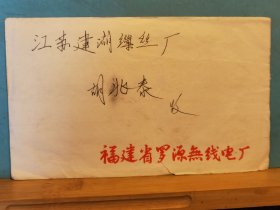 江苏建湖缫丝厂
胡兆泰 收
福建省罗源無线电厂